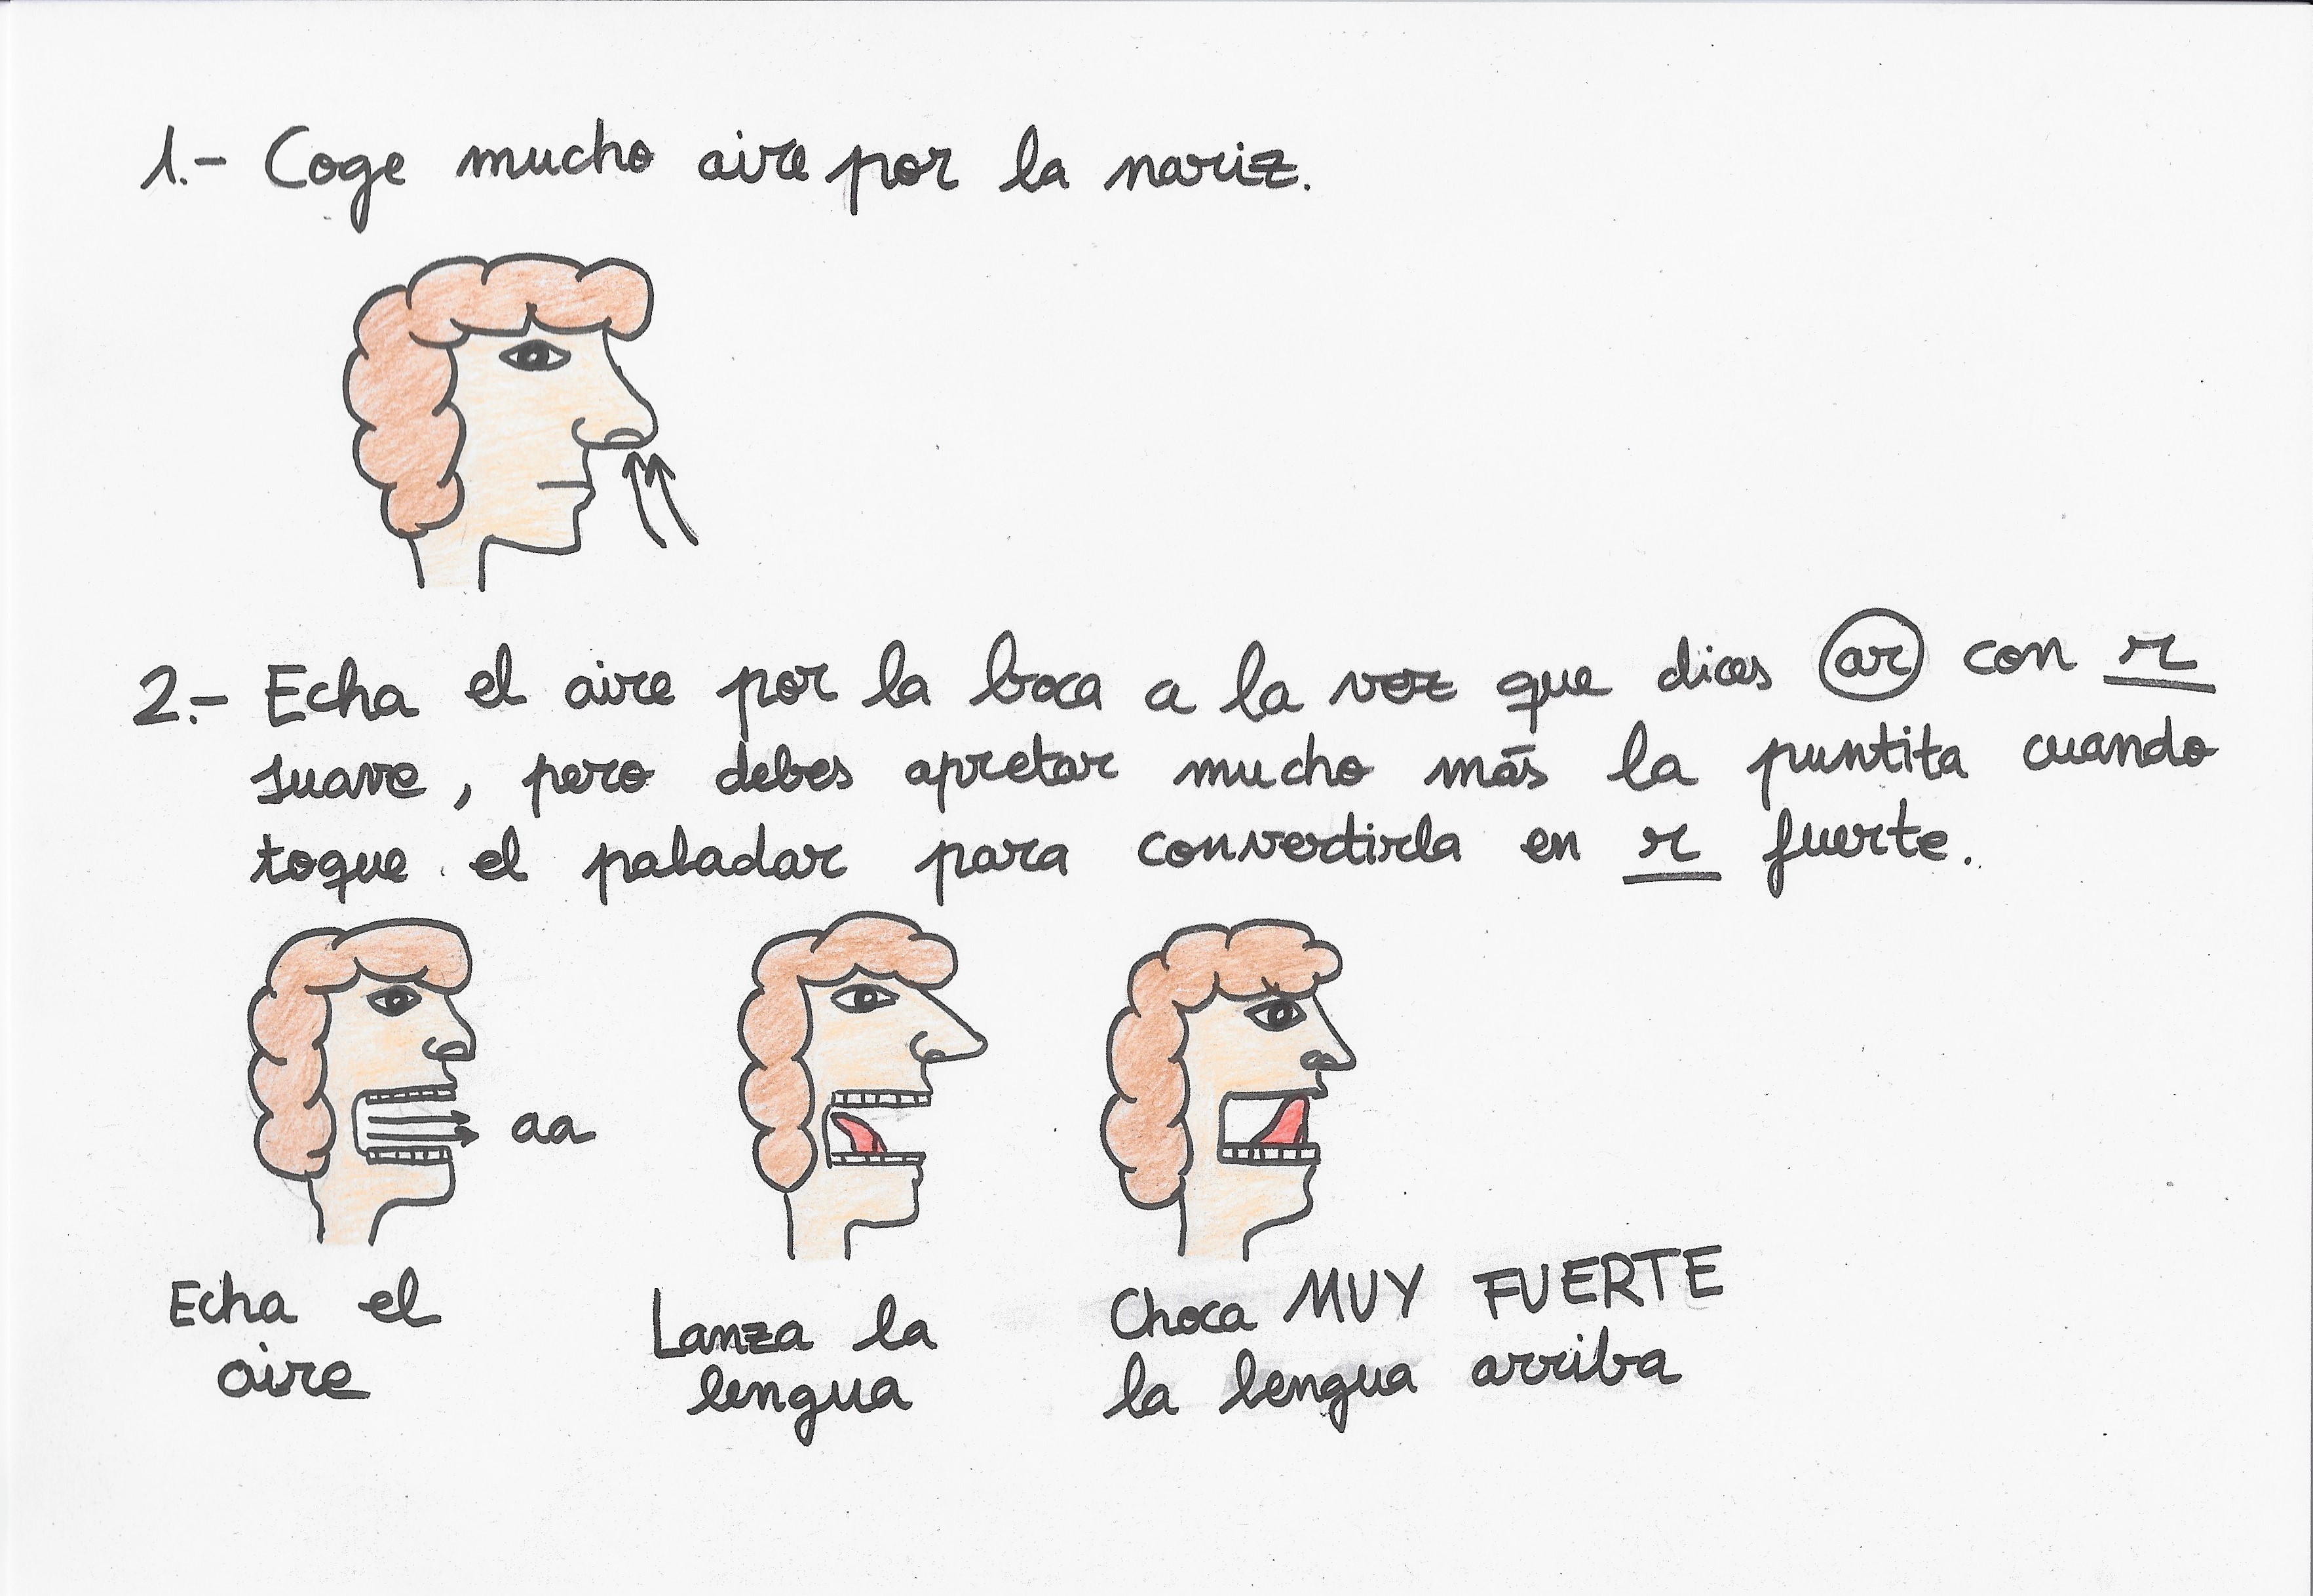 1.- Coge mucho aire por la nariz.
2.- Echa el aire por la boca a la vez que dices ar con r
suave, pero debes apretar mucho más la puntita cuando
toque el paladar para convertirla en r fuerte.
aa
Echa el
aire
Lanza la
lengua
Choca MUY FUERTE
la lengua arriba